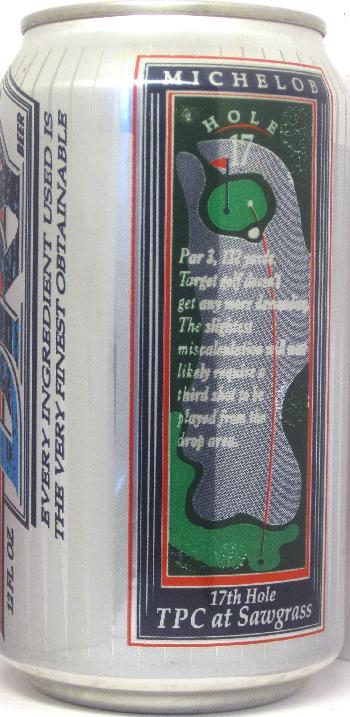 MICHELOB
HOLE
17
Par 3, 132 yards.
Target golf doesn't
get any more demanding.
The slightest
miscalculation and
likely require a
third shot to be
played from the
drop area.
17th Hole
TPC at Sawgrass
DRY
BEER
EVERY INGREDIENT USED IS
THE VERY FINEST OBTAINABLE
12 FL. OZ.